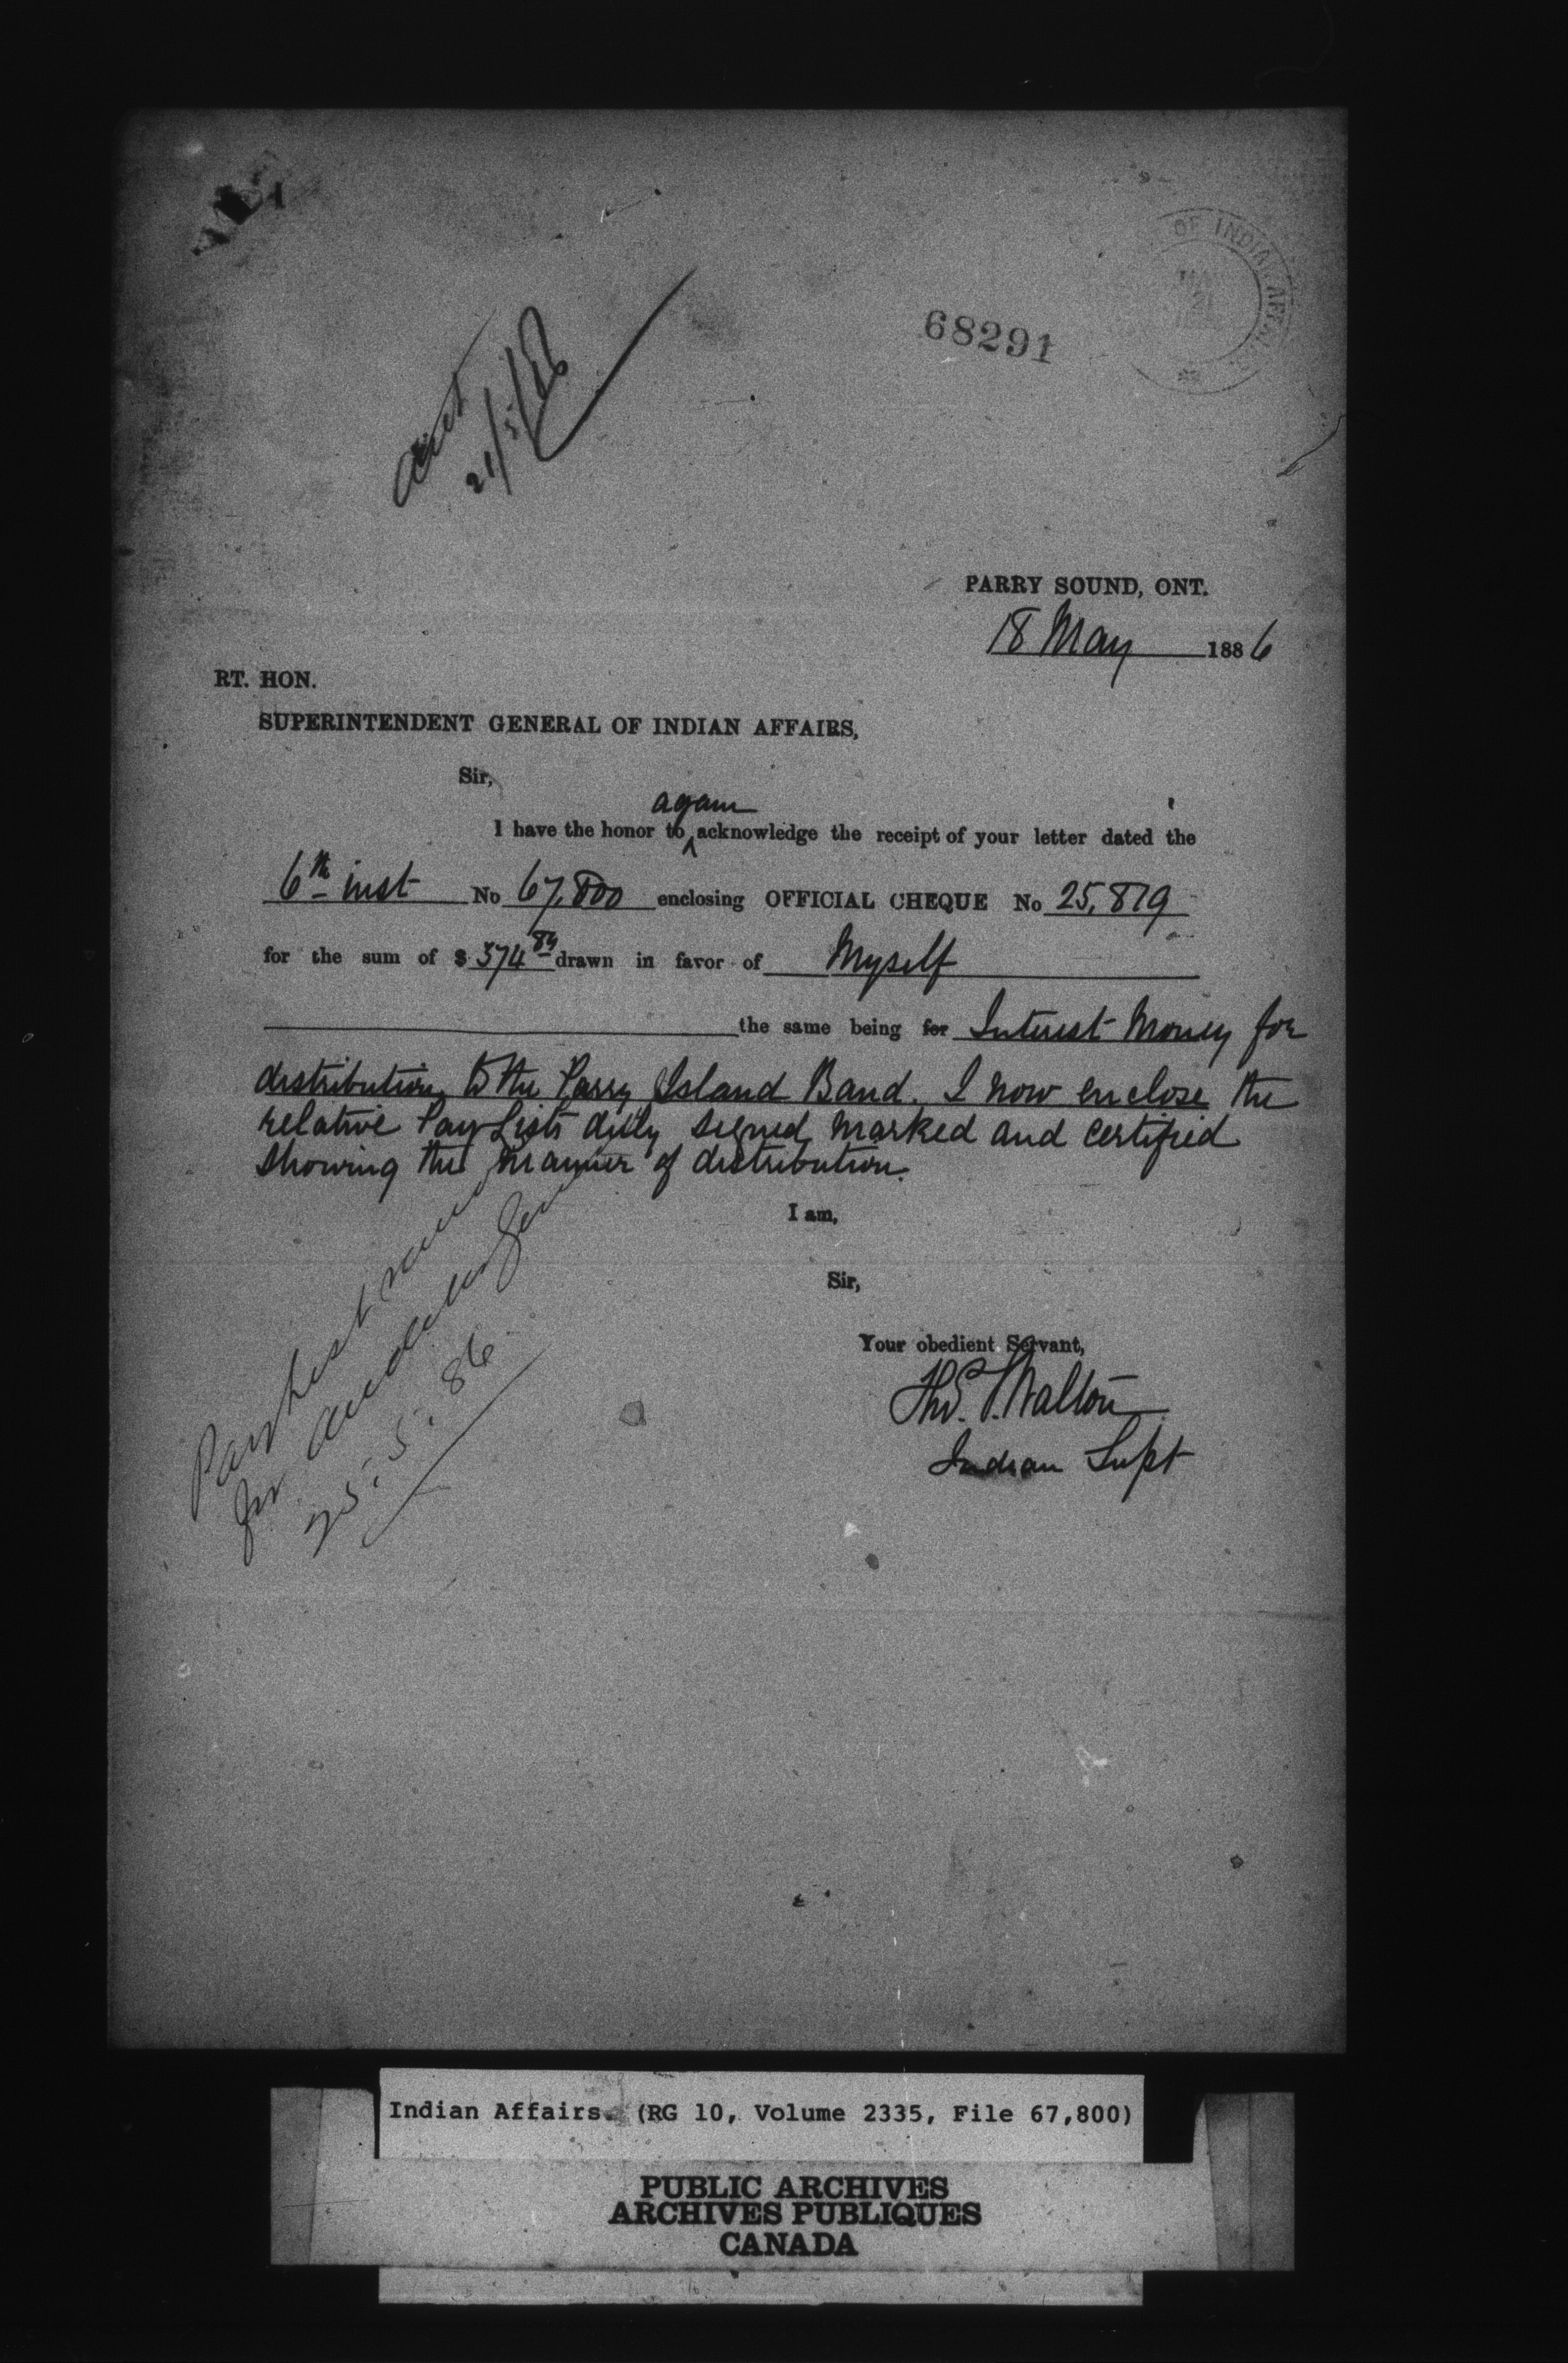 OF INDIAN AFFAIRS
MAY
21
68291
21/5/86
PARRY SOUND, ONT.
18 May 1886
RT. HON.
SUPERINTENDENT GENERAL OF INDIAN AFFAIRS,
Sir,
again
I have the honor to ^ acknowledge the receipt of your letter dated the
6th inst No 67,800 enclosing OFFICIAL CHEQUE No 25,819
for the sum of $ 374 84 drawn in favor of Myself
the same being for Interest Money for
distribution to the Parry Island Band. I now enclose the
relative Pay Lists duly signed, marked and certified
showing the manner of distribution.
I am,
Sir,
Your obedient Servant,
Thos. S. Walton
Indian Supt
Pay List
for
25.5.86
Indian Affairs. (RG 10, Volume 2335, File 67,800)
PUBLIC ARCHIVES
ARCHIVES PUBLIQUES
CANADA